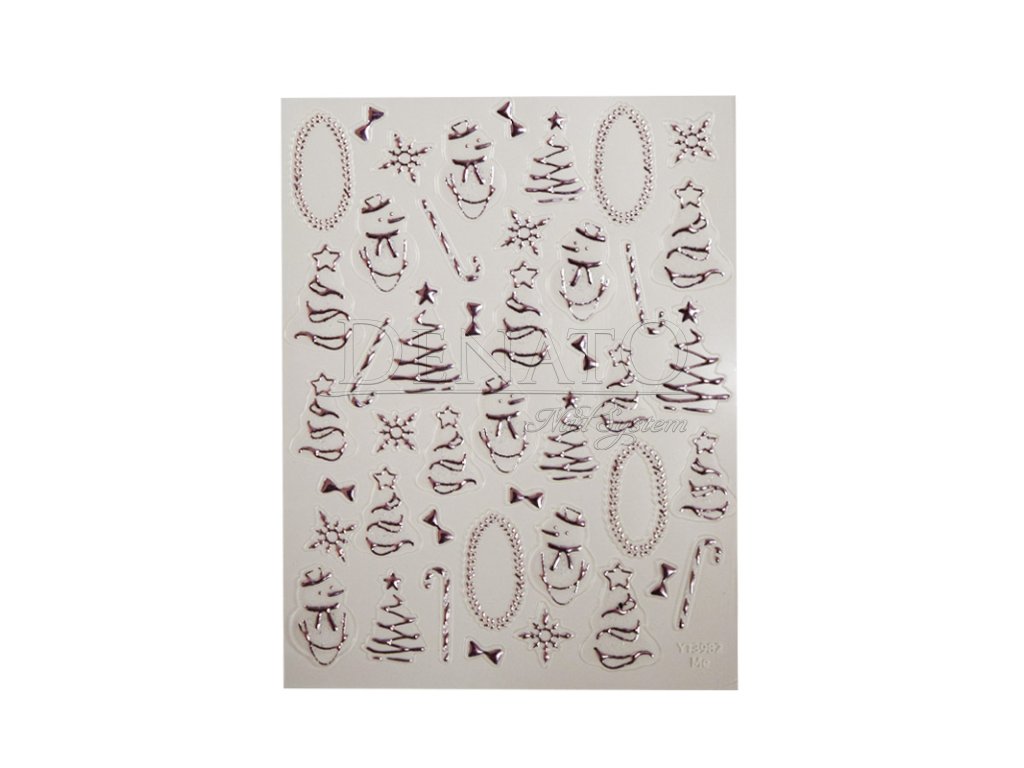 DENATO
Nail System
YT3987